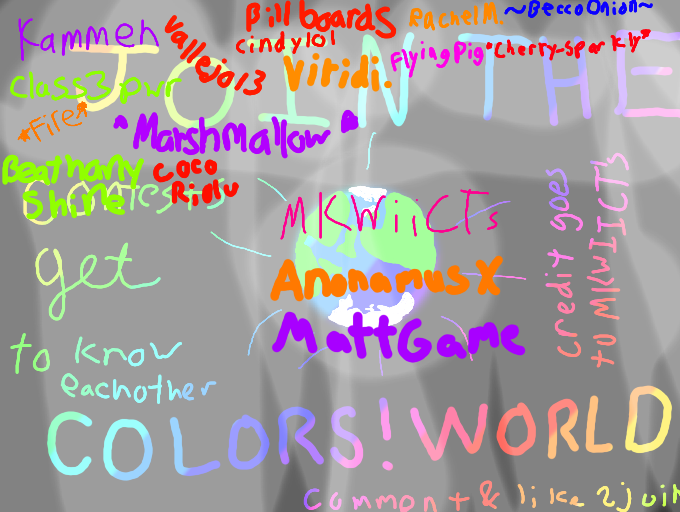 Kammeh
Vallejo13
Billboards
RachelM.
~BeccoOnion~
cindylol
Viridi.
FlyingPig
*Cherry-Sparkly*
JOIN THE
Class3pwr
*Fire*
*Marshmallow*
Beathany
Shine
Coco
contests
MKWiiCTs
AnonamusX
MattGame
get
to know
eachother
credit goes
to MKWIICTs
COLORS! WORLD
comment & like 2 join